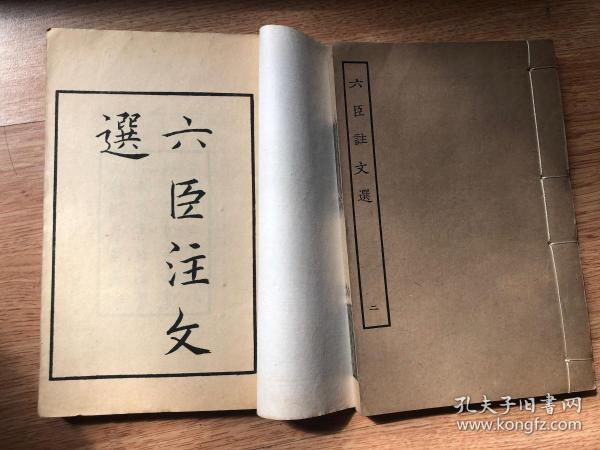 六臣注文
選
六臣註文選
二
孔夫子旧书网
www.kongfz.com